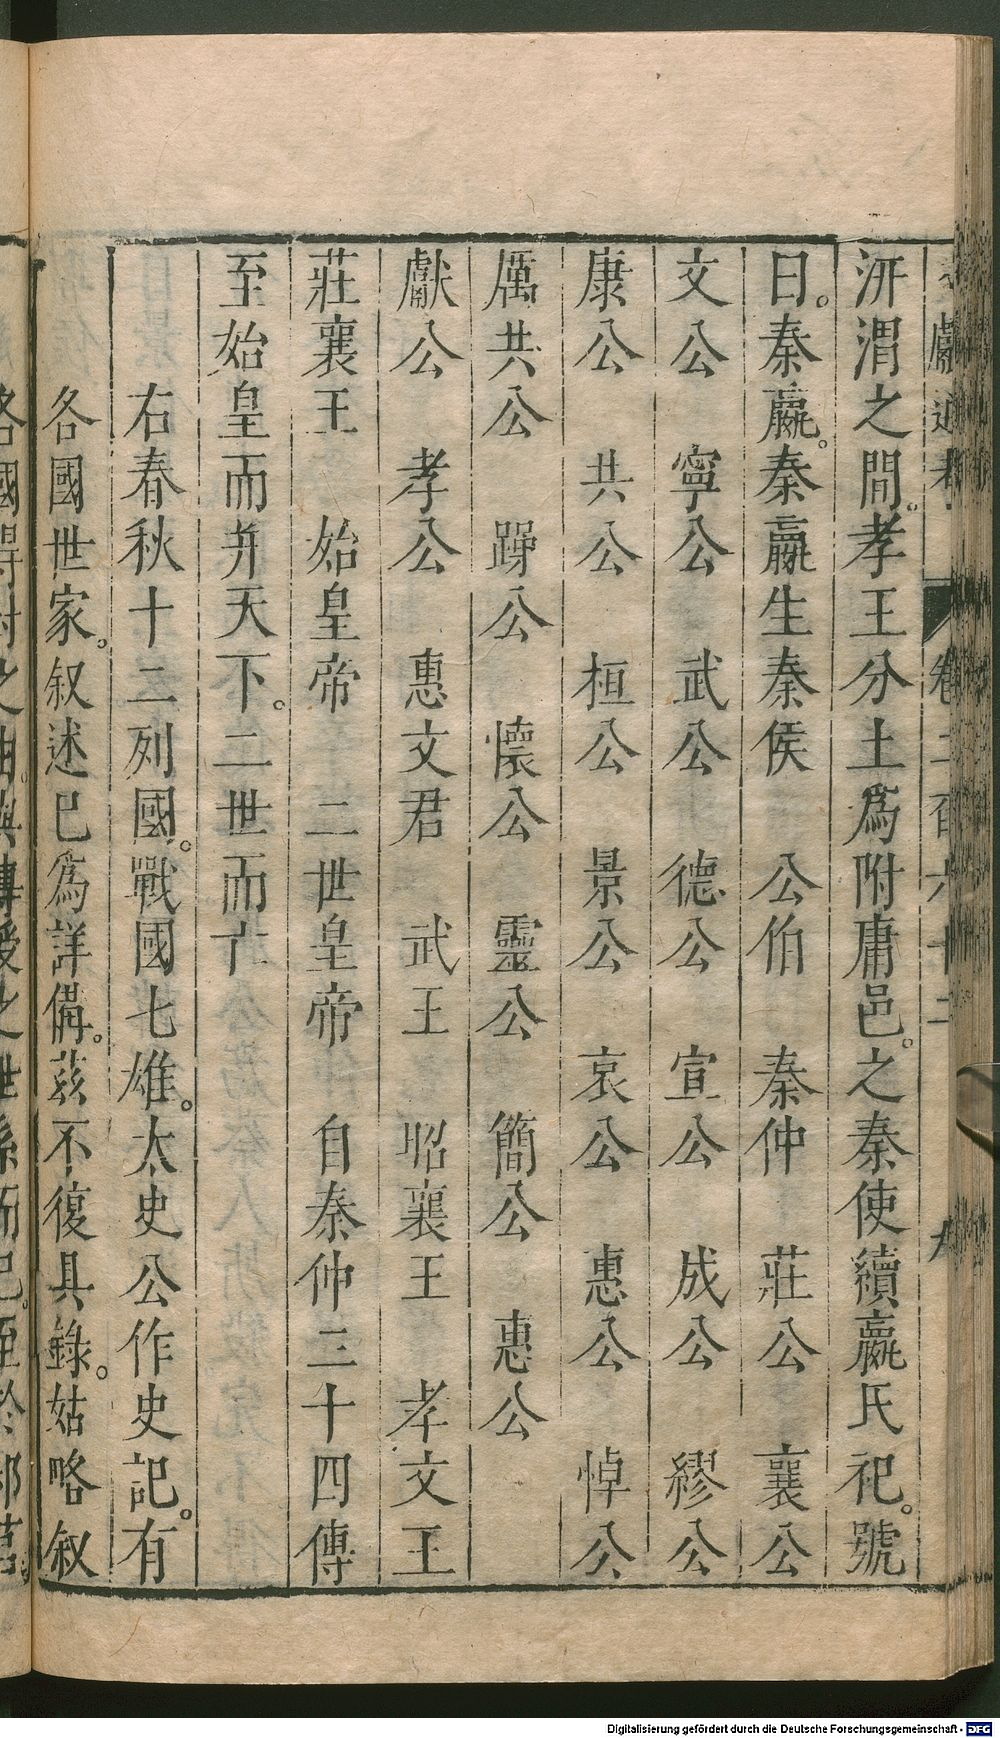 汧渭之間。孝王分土爲附庸邑。之秦使續嬴氏祀。號
曰。秦嬴。秦嬴生秦侯　公伯　秦仲　莊公　襄公
文公　寧公　武公　德公　宣公　成公　繆公
康公　共公　桓公　景公　哀公　惠公　悼公
厲共公　躁公　懷公　靈公　簡公　惠公
獻公　孝公　惠文君　武王　昭襄王　孝文王
莊襄王　始皇帝　二世皇帝　自秦仲三十四傳
至始皇而并天下。二世而亡
右春秋十二列國。戰國七雄。太史公作史記。有
各國世家。叙述已爲詳備。茲不復具錄。姑略叙
獻通考　卷二百六十二　九
Digitalisierung gefördert durch die Deutsche Forschungsgemeinschaft - DFG